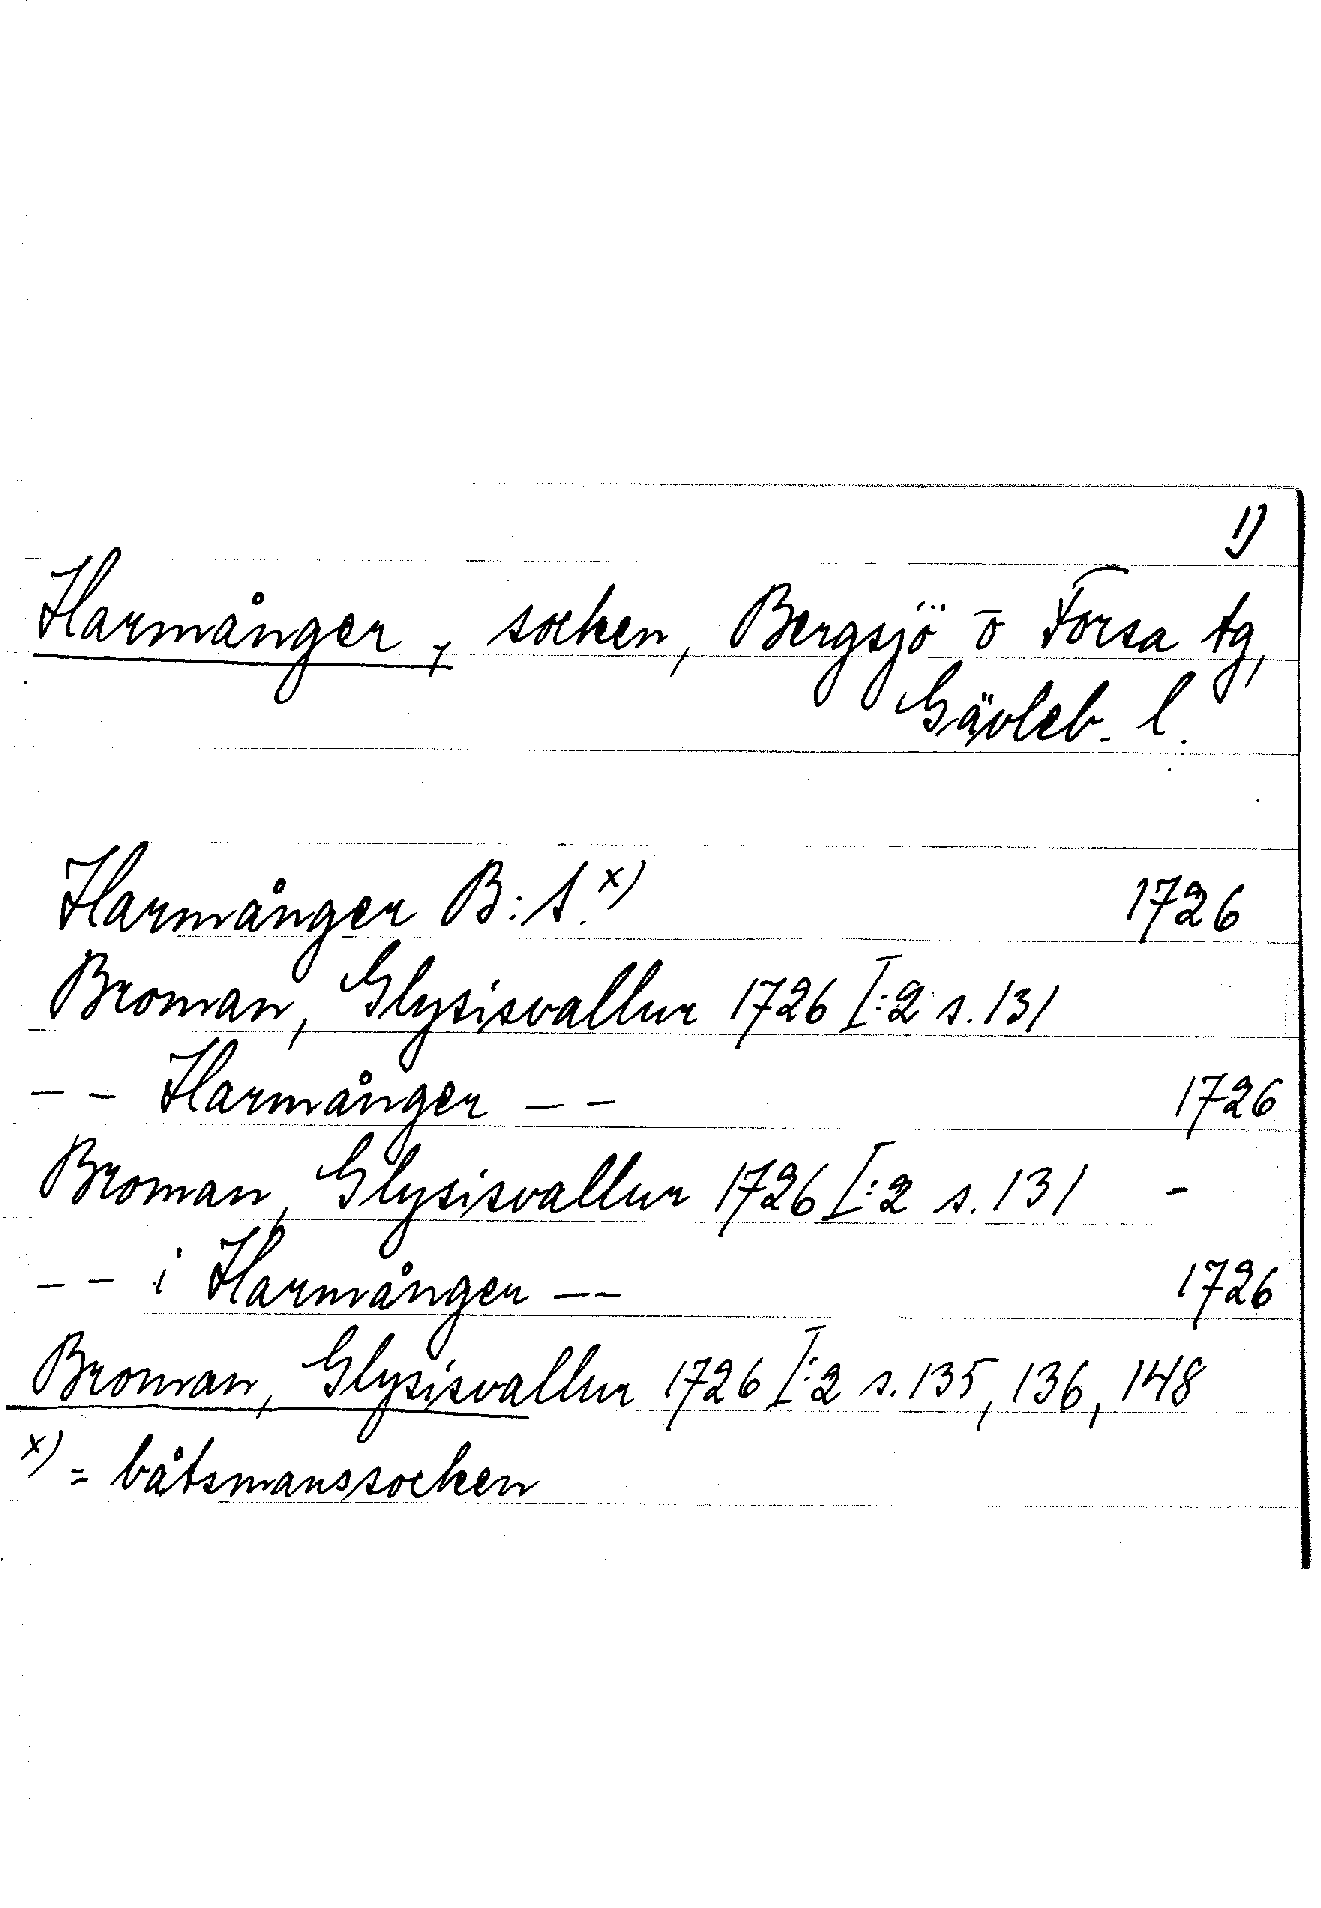 1)
Harmånger, socken, Bergsjö o Forsa tg,
Gävleb. l.
Harmånger B:S. x) 1726
Broman, Glysisvallur 1726 I:2 s. 131
-- Harmånger -- 1726
Broman, Glysisvallur 1726 I:2 s. 131 -
-- i Harmånger -- 1726
Broman, Glysisvallur 1726 I:2 s. 135, 136, 148
x) = båtsmanssocken